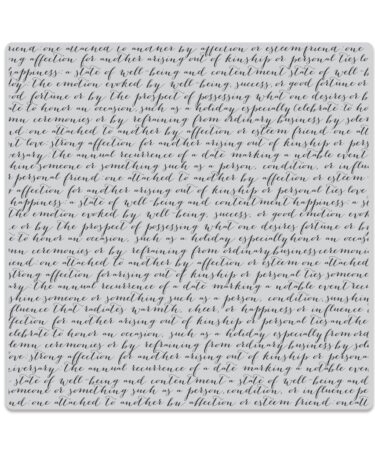 friend one attached to another by affection or esteem friend one
ng affection for another arising out of kinship or personal ties lo
happiness a state of well-being and contentment state of well-b
joy. the emotion evoked by well-being, success, or good fortune or
od fortune or by the prospect of possessing what one desires or b
ate to honor an occasion, such as a holiday especially celebrate to ho
mn ceremonies or by refraining from ordinary business by sole
nd one attached to another by affection or esteem friend, one att
nt love strong affection for another arising out of kinship or per
versary. the annual recurrence of a date marking a notable event
shine someone or something such as a person, condition, or influ
r personal friend one attached to another by affection or esteem
r affection for another arising out of kinship of personal ties love
happiness a state of well-being and contentment happiness a s
the emotion evoked by well-being, success, or good emotion evok
e or by the prospect of possessing what one desires fortune or by
e to honor an occasion, such as a holiday, especially honor an occasi
mn ceremonies or by refraining from ordinary business ceremoni
iend one attached to another by affection or esteem one attached
strong affection for arising out of kinship or personal ties someone
ry. the annual recurrence of a date marking a notable event rec
shine someone or something such as a person, condition, sunshin
fluence that radiates warmth, cheer, or happiness or influence
fection for another arising out of kinship or personal ties and the
elebrate to honor an occasion, such as a holiday, especially from ord
lemn ceremonies or by refraining from ordinary business by sole
love strong affection for another arising out of kinship or persona
niversary. the annual recurrence of a date marking a notable even
state of well-being and contentment a state of well-being and
someone or something such as a person, condition, or influence pe
nd one attached to another by affection or esteem friend one att